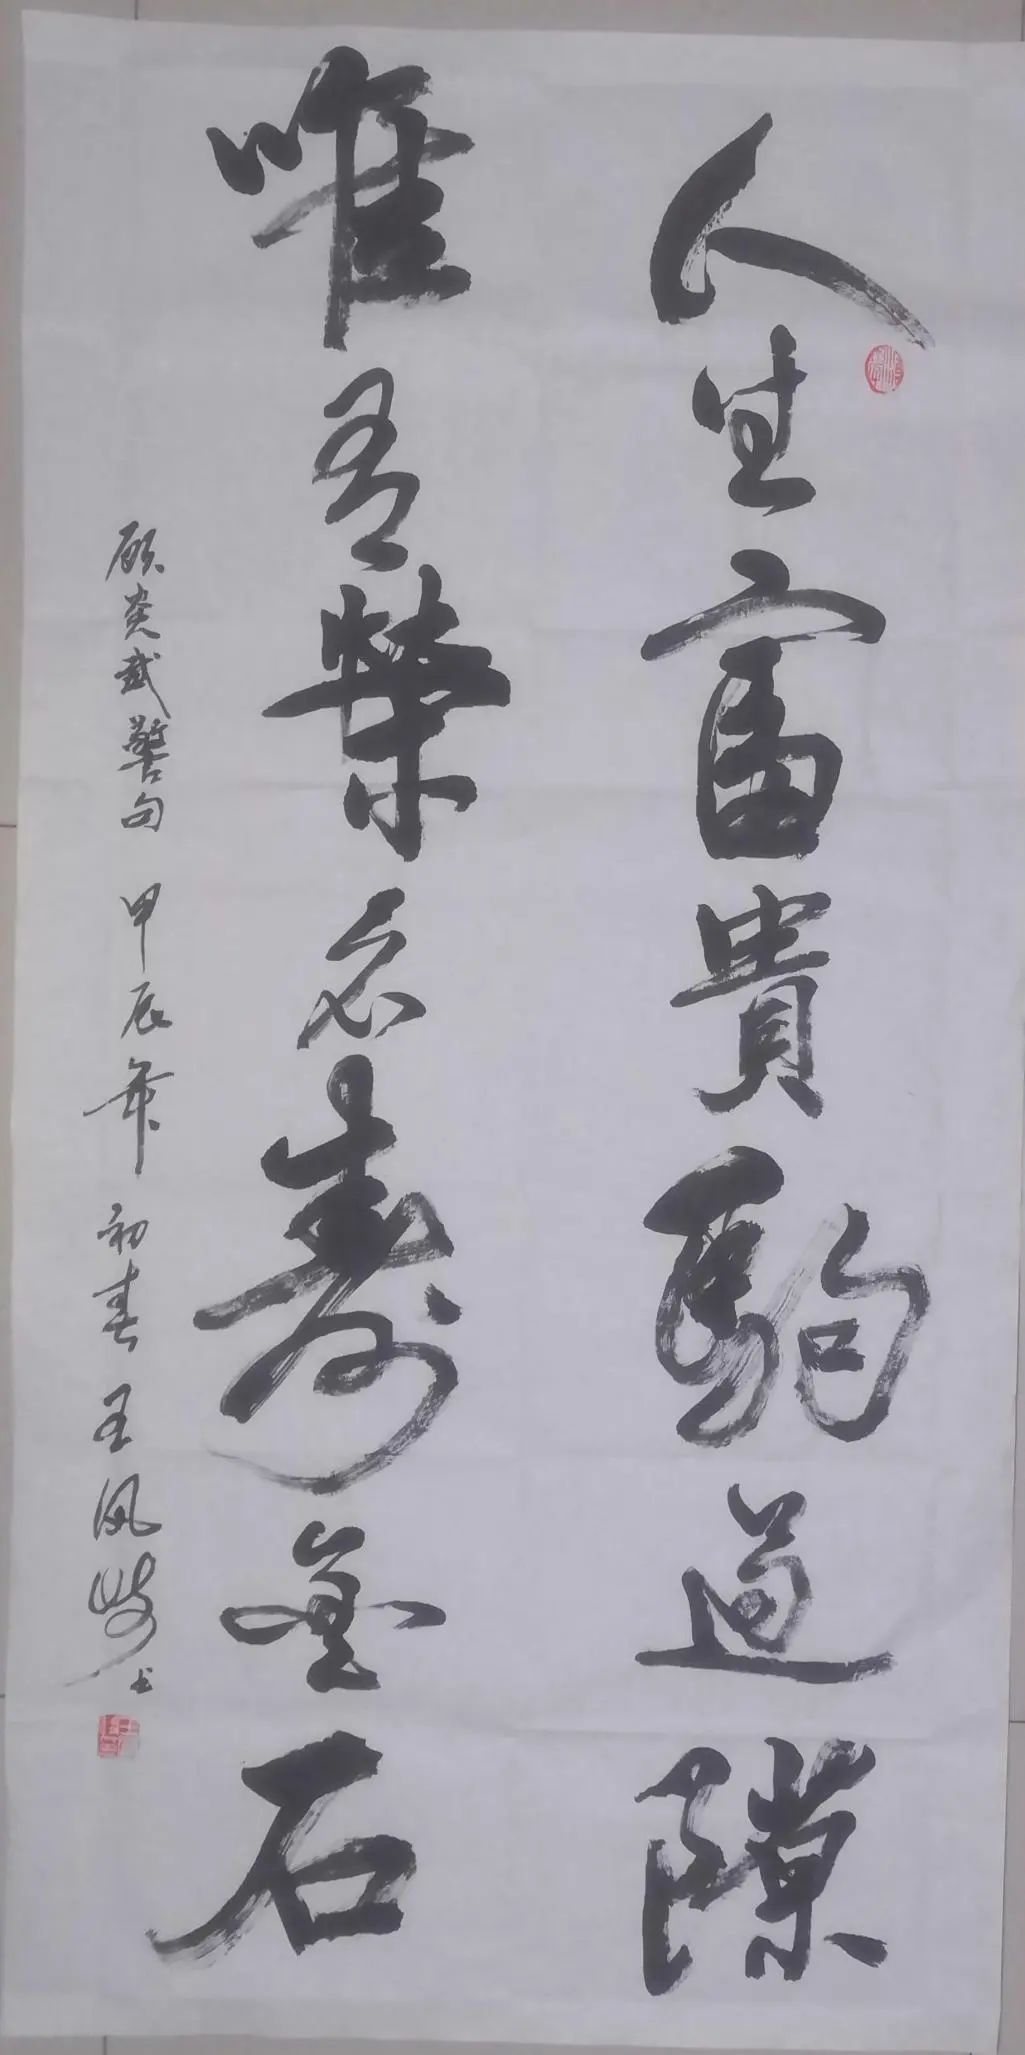 人生富貴駒過隙
唯有榮名壽金石
顾炎武警句 甲辰年 初春 王凤岐书